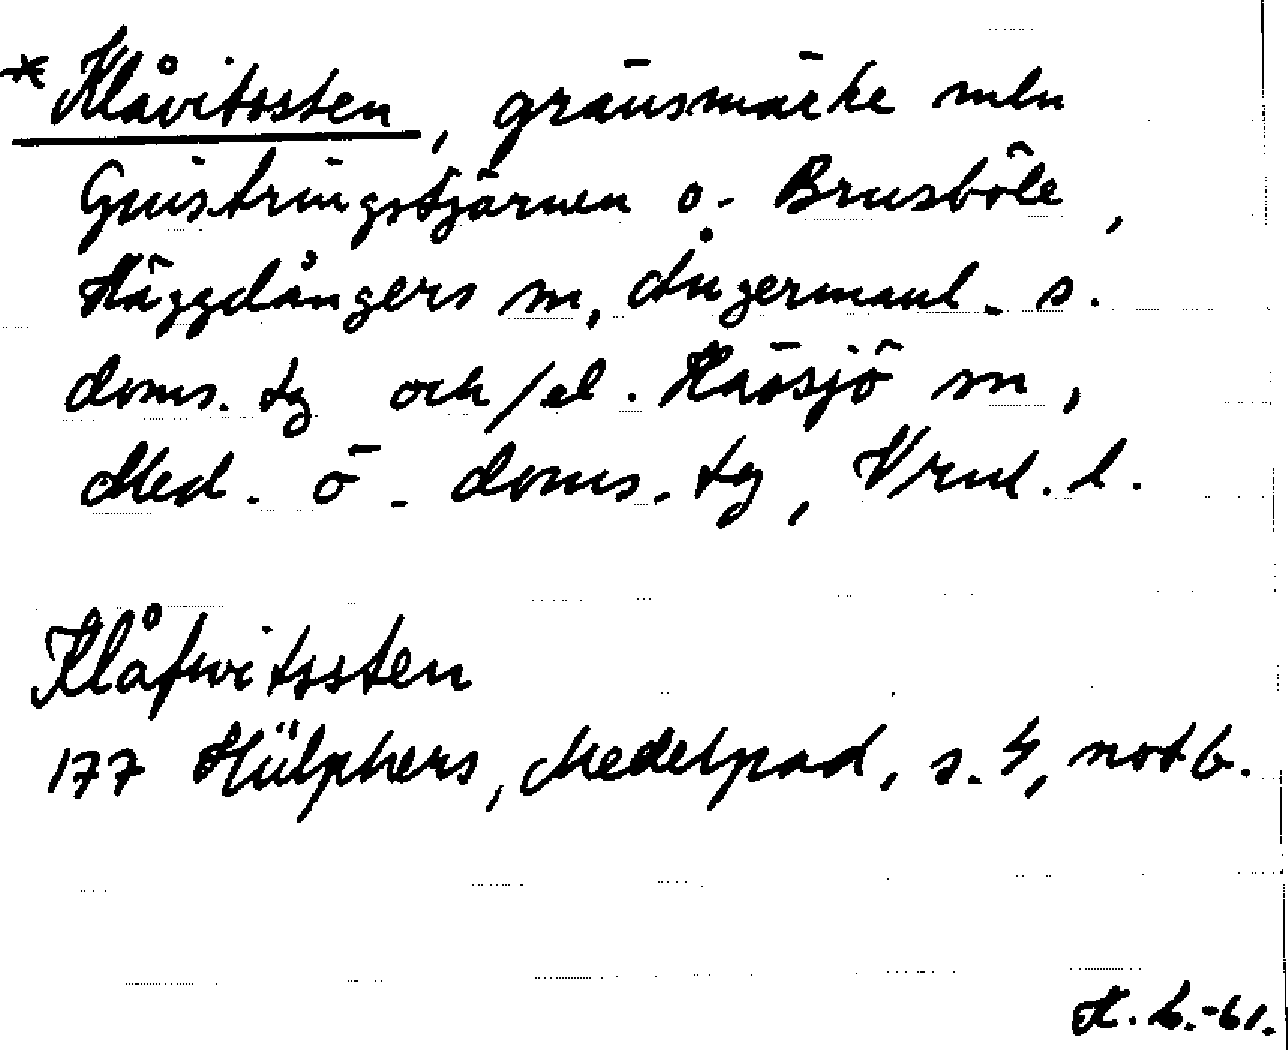 * Klåvitssten, gränsmärke mln
Gnistringstjärnen o. Brusböle,
Häggdångers sn, Ångermanl. s.
doms. tg och/el. Haåsjö sn,
Med. ö. doms. tg, Vrnl. l.
Klåfwitssten
177 Hülphers, Medelpad, s. 4, not b.
H. L. -61.